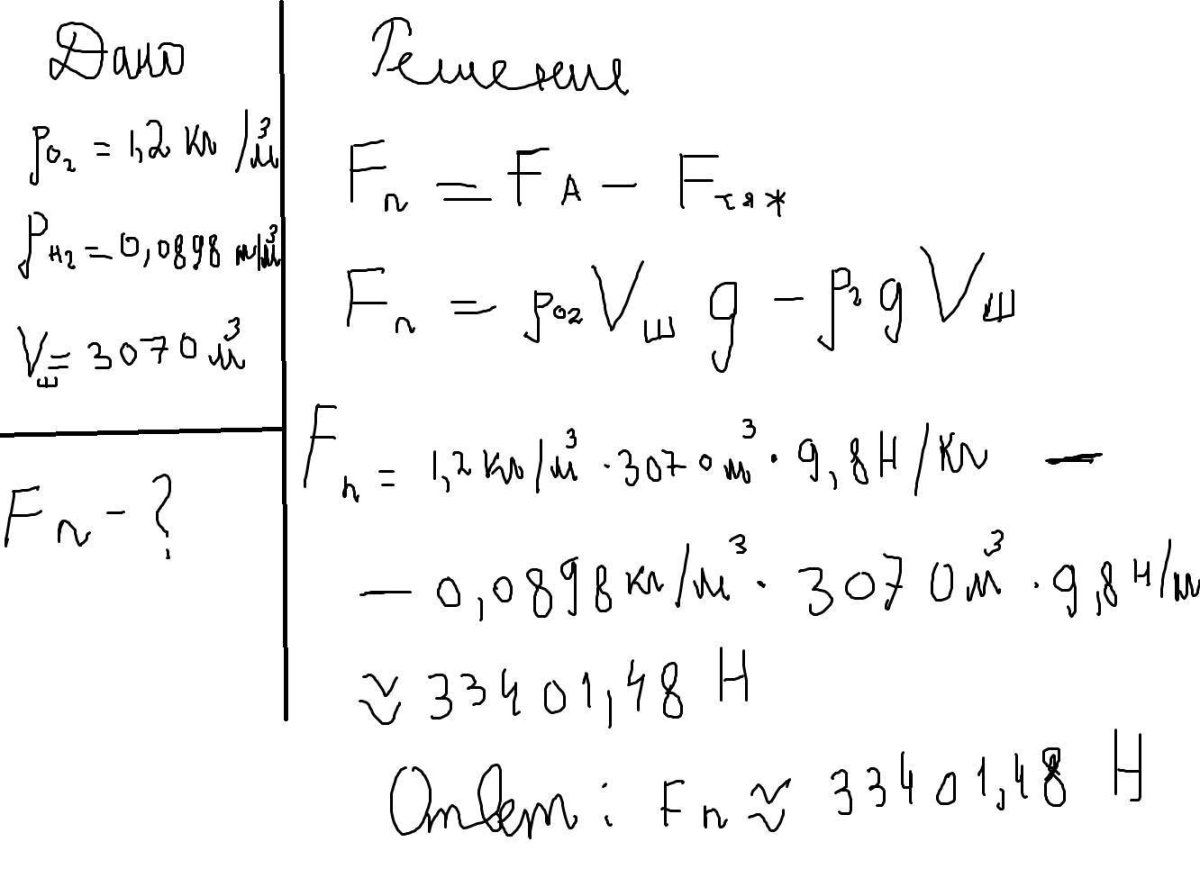 Дано
ρO₂ = 1,2 кг/м³
ρH₂ = 0,0898 кг/м³
Vш = 3070 м³
Fп - ?
Решение
Fп = FА - Fтяж
Fп = ρO₂ Vш g - ρ₂ g Vш
Fп = 1,2 кг/м³ · 3070 м³ · 9,8 Н/кг -
- 0,0898 кг/м³ · 3070 м³ · 9,8 Н/кг
≈ 33401,48 Н
Ответ: Fп ≈ 33401,48 Н